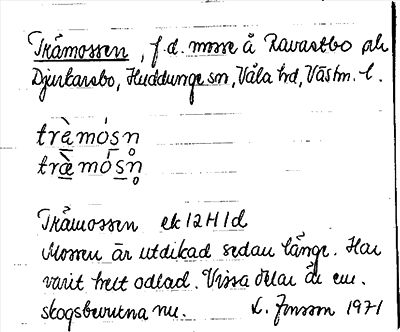 Tråmossen, f.d. mosse å Ravastbo och
Djurkarsbo, Huddunge sn, Våla hd, Västm. l.
træ̀mósn̥
træ̀mósn̥
Tråmossen ek 12H1d
Mossen är utdikad sedan länge. Har
varit helt odlad. Vissa delar är nu
skogsbevuxna nu. L. Jonsson 1971